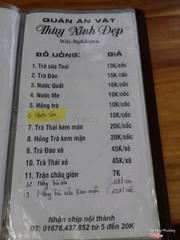 QUÁN ĂN VẶT
Thùy Ninh Đẹp
ĐỒ UỐNG: GIÁ
1. Trà sữa Thái 10K/cốc
2. Trà Đào 15K/cốc
3. Nước Quất 10K/cốc
4. Nước Me 10K/cốc
5. Hồng trà 10K/cốc
7. Trà Thái kem mặn 20K/cốc
8. Hồng Trà kem mặn 20K/cốc
9. Trà Đào xô 45K/xô
10. Trà Thái xô 45K/xô
11. Trân châu giòn 7K
12 Hồng Trà sữa
13. Hồng Trà sữa kem mặn
Nhận ship nội thành
ĐT: 01678.437.852 từ 5 đến 20K